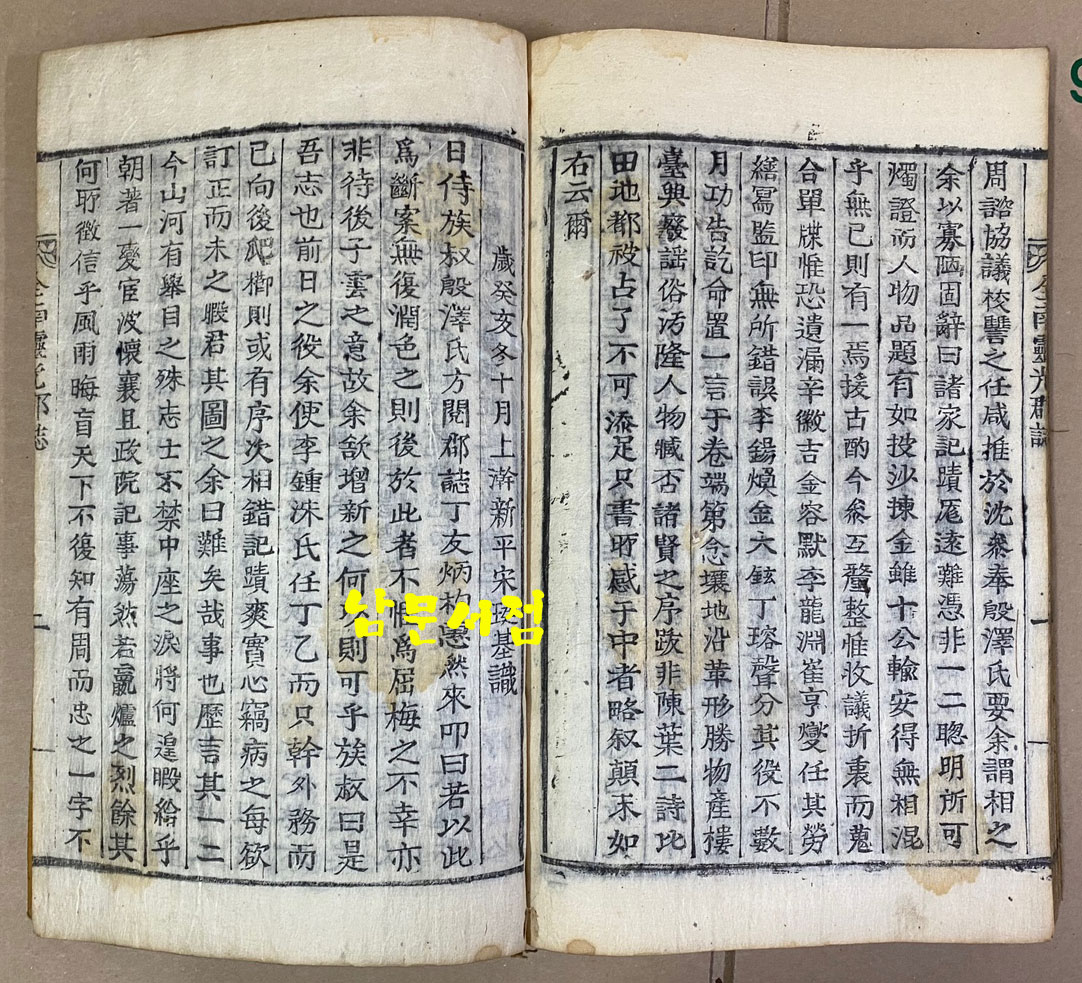 周諮協議校讐之任咸推於沈參奉殷澤氏要余謂相之
余以寡陋固辭曰諸家記蹟厖遠難憑非一二聰明所可
燭證而人物品題有如投沙揀金雖十公輸安得無相混
乎無已則有一焉援古酌今參互釐整惟收議折衷而蒐
合單牒惟恐遺漏辛徽吉金容默李龍淵崔亨燮任其勞
繕寫監印無所錯誤李鍚煥金大鉉丁瑢聲分其役不數
月功告訖命置一言于卷端第念壤地沿革形勝物產樓
臺興廢謠俗汚隆人物臧否諸賢之序跋非陳葉二詩比
田地都被占了不可添足只書所感于中者略叙顛末如
右云爾
全南靈光郡誌
一
歲癸亥冬十月上澣新平宋 基識
日侍族叔殷澤氏方閱郡誌丁友炳 惠然來叩曰若以此
爲斷案無復潤色之則後於此者不 爲屈梅之不幸亦
非待後子雲之意故余欲增新之何 則可乎族叔曰是
吾志也前日之役余使李鍾洙氏任丁乙而只幹外務而
已向後爬櫛則或有序次相錯記蹟爽實心竊病之每欲
訂正而未之暇君其圖之余曰難矣哉事也歷言其一二
今山河有舉目之殊志士不禁中座之淚將何遑暇給乎
朝著一變宦波懷襄且政院記事蕩然若嬴爐之烈餘其
何所徵信乎風雨晦盲天下不復知有周而忠之一字不
全南靈光郡誌
二
남문서점
9